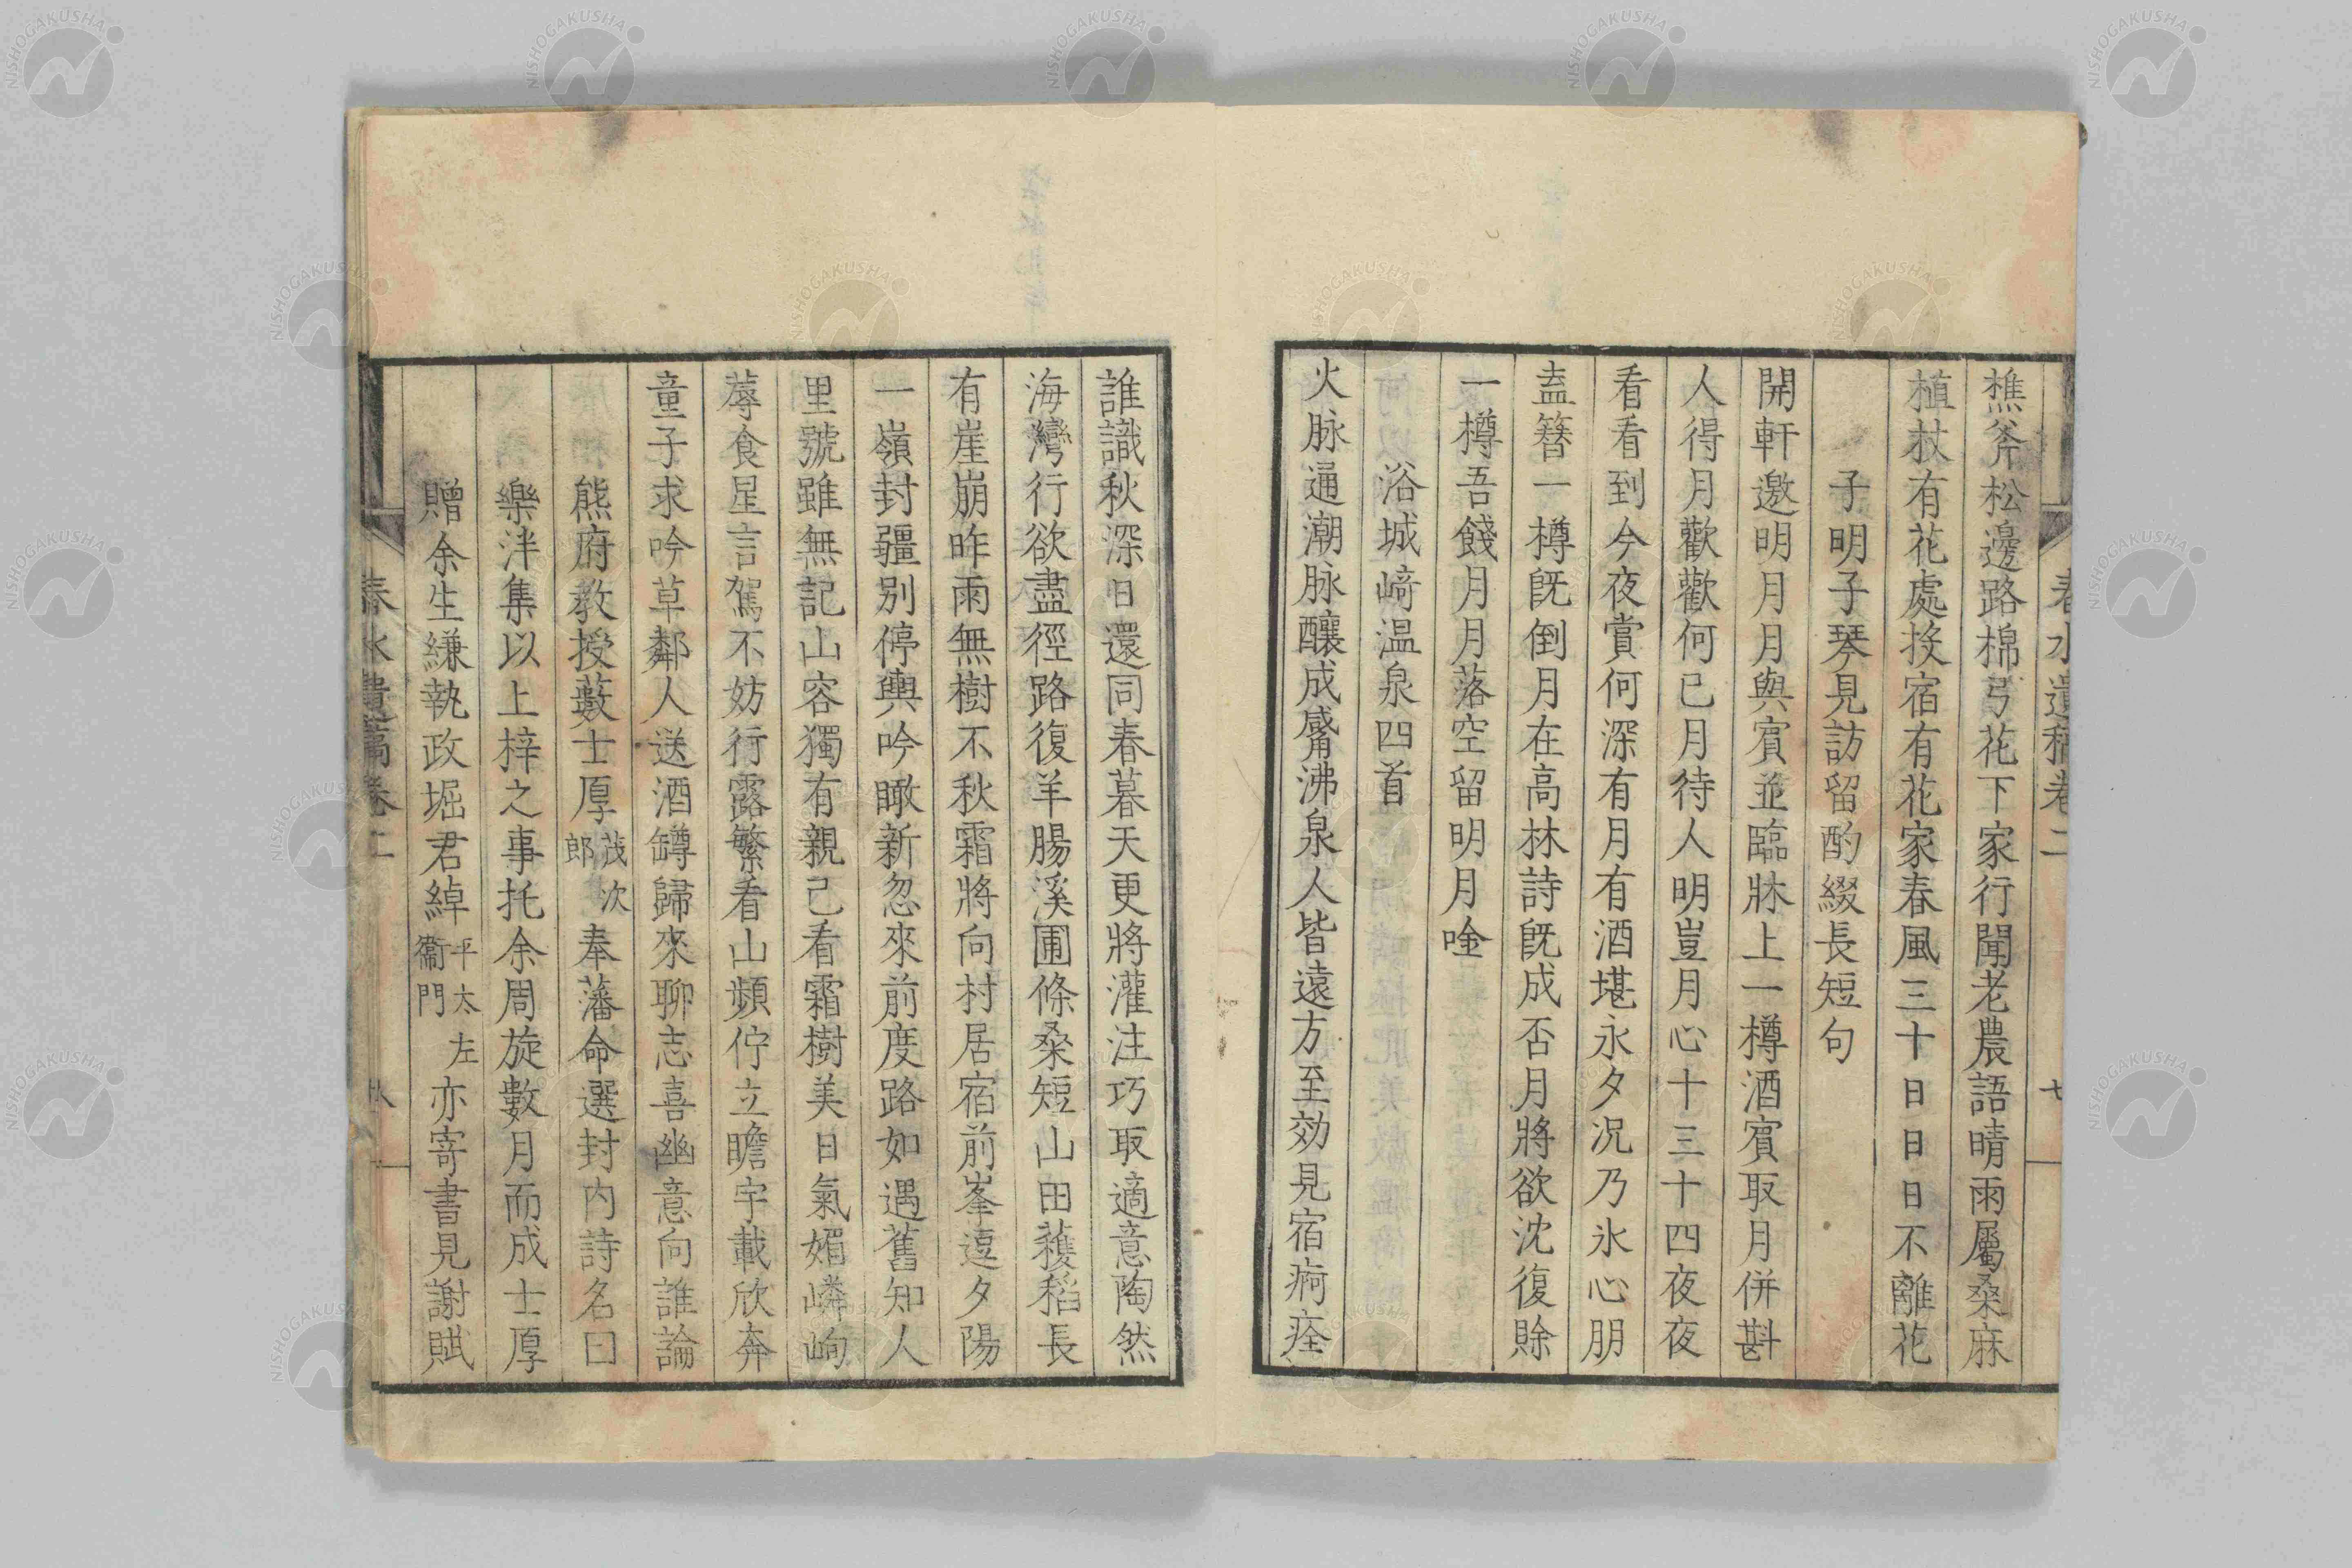 春水遺稿卷二
七
樵斧松邊路棉弓花下家行聞老農語晴雨屬桑麻
植杖有花處投宿有花家春風三十日日日不離花
子明子琴見訪留酌綴長短句
開軒邀明月月與賓並臨牀上一樽酒賓取月併斟
人得月歡歡何已月待人明豈月心十三十四夜夜
看看到今夜賞何深有月有酒堪永夕况乃氷心朋
盍簪一樽旣倒月在高林詩旣成否月將欲沈復賖
一樽吾餞月月落空留明月唫
浴城崎温泉四首
火脉通潮脉釀成觱沸泉人皆遠方至効見宿痾痊
誰識秋深日還同春暮天更將灌注巧取適意陶然
海灣行欲盡徑路復羊腸溪圃條桑短山田穫稻長
有崖崩昨雨無樹不秋霜將向村居宿前峯遑夕陽
一嶺封疆別停輿吟瞰新忽來前度路如遇舊知人
里號雖無記山容獨有親己看霜樹美日氣媚嶙峋
蓐食星言駕不妨行露繁看山頻佇立瞻宇載欣奔
童子求吟草鄰人送酒罇歸來聊志喜幽意向誰論
熊府敎授藪士厚茂次郎奉藩命選封内詩名曰
樂泮集以上梓之事托余周旋數月而成士厚
贈余生縑執政堀君綽平太左衞門亦寄書見謝賦
春水遺稿卷二
八